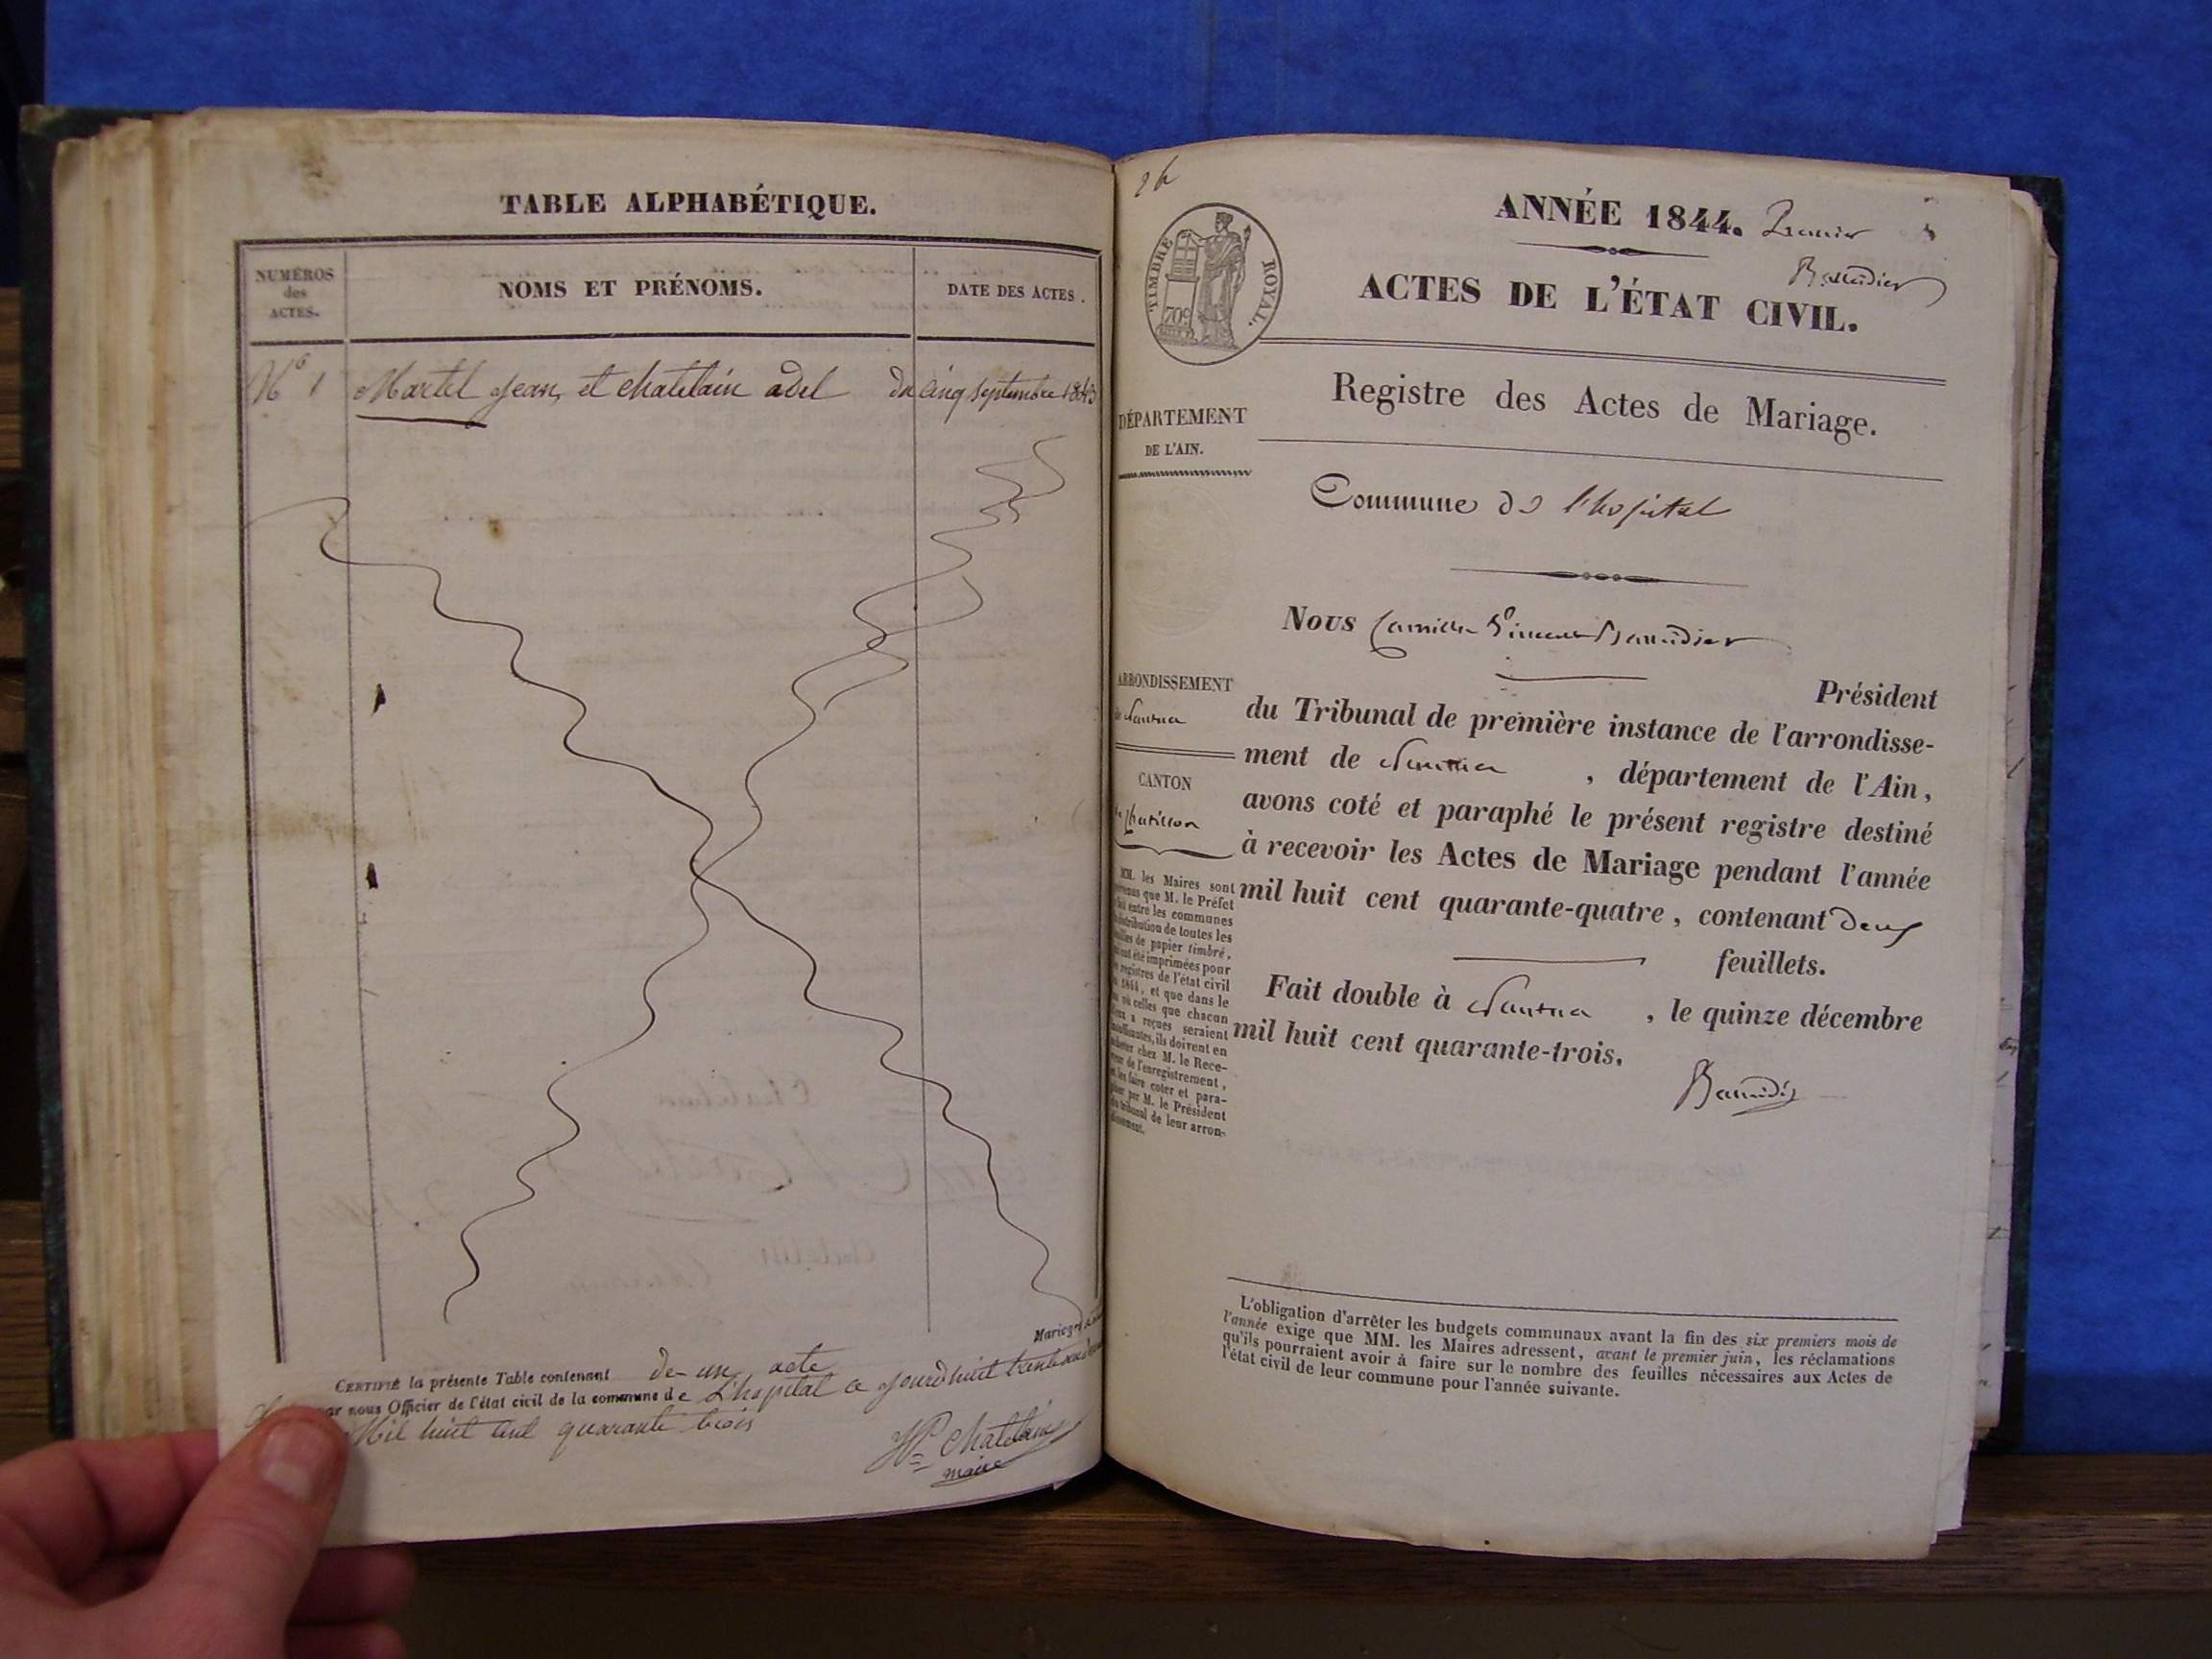 TABLE ALPHABÉTIQUE.
NUMÉROS
des
ACTES.
NOMS ET PRÉNOMS.
DATE DES ACTES.
No 1 Martel Jean, et chatelain adel du cinq septembre 1843
CERTIFIÉ la présente Table contenant de un acte
par nous Officier de l'état civil de la commune de L'hopital ce jourdhuit trente
Mil huit cent quarante trois
Chatelain
maire
ANNÉE 1844. Premier
Baudier
ACTES DE L'ÉTAT CIVIL.
TIMBRE ROYAL.
70c
Registre des Actes de Mariage.
DÉPARTEMENT
DE L'AIN.
Commune de l'hopital
Nous Camille Vincent
Président
ARRONDISSEMENT
de Nantua
du Tribunal de première instance de l'arrondisse-
ment de Nantua , département de l'Ain,
CANTON
de Chatillon
avons coté et paraphé le présent registre destiné
à recevoir les Actes de Mariage pendant l'année
mil huit cent quarante-quatre, contenant deux
feuillets.
Fait double à Nantua , le quinze décembre
mil huit cent quarante-trois.
MM. les Maires sont
prévenus que M. le Préfet
a fait entre les communes
la distribution de toutes les
feuilles de papier timbré,
qui ont été imprimées pour
les registres de l'état civil
de 1844, et que dans le
cas où celles que chacun
d'eux a reçues seraient
insuffisantes, ils doivent en
acheter chez M. le Rece-
veur de l'enregistrement,
et les faire coter et para-
pher par M. le Président
du tribunal de leur arron-
dissement.
L'obligation d'arrêter les budgets communaux avant la fin des six premiers mois de
l'année exige que MM. les Maires adressent, avant le premier juin, les réclamations
qu'ils pourraient avoir à faire sur le nombre des feuilles nécessaires aux Actes de
l'état civil de leur commune pour l'année suivante.